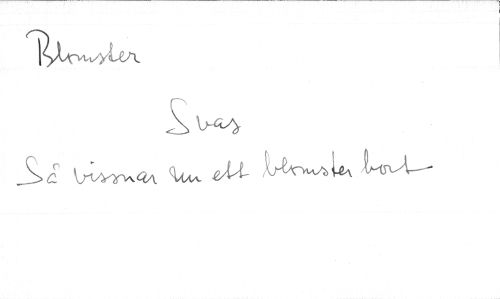 Blomster
Svas
Så vissnar nu ett blomster bort